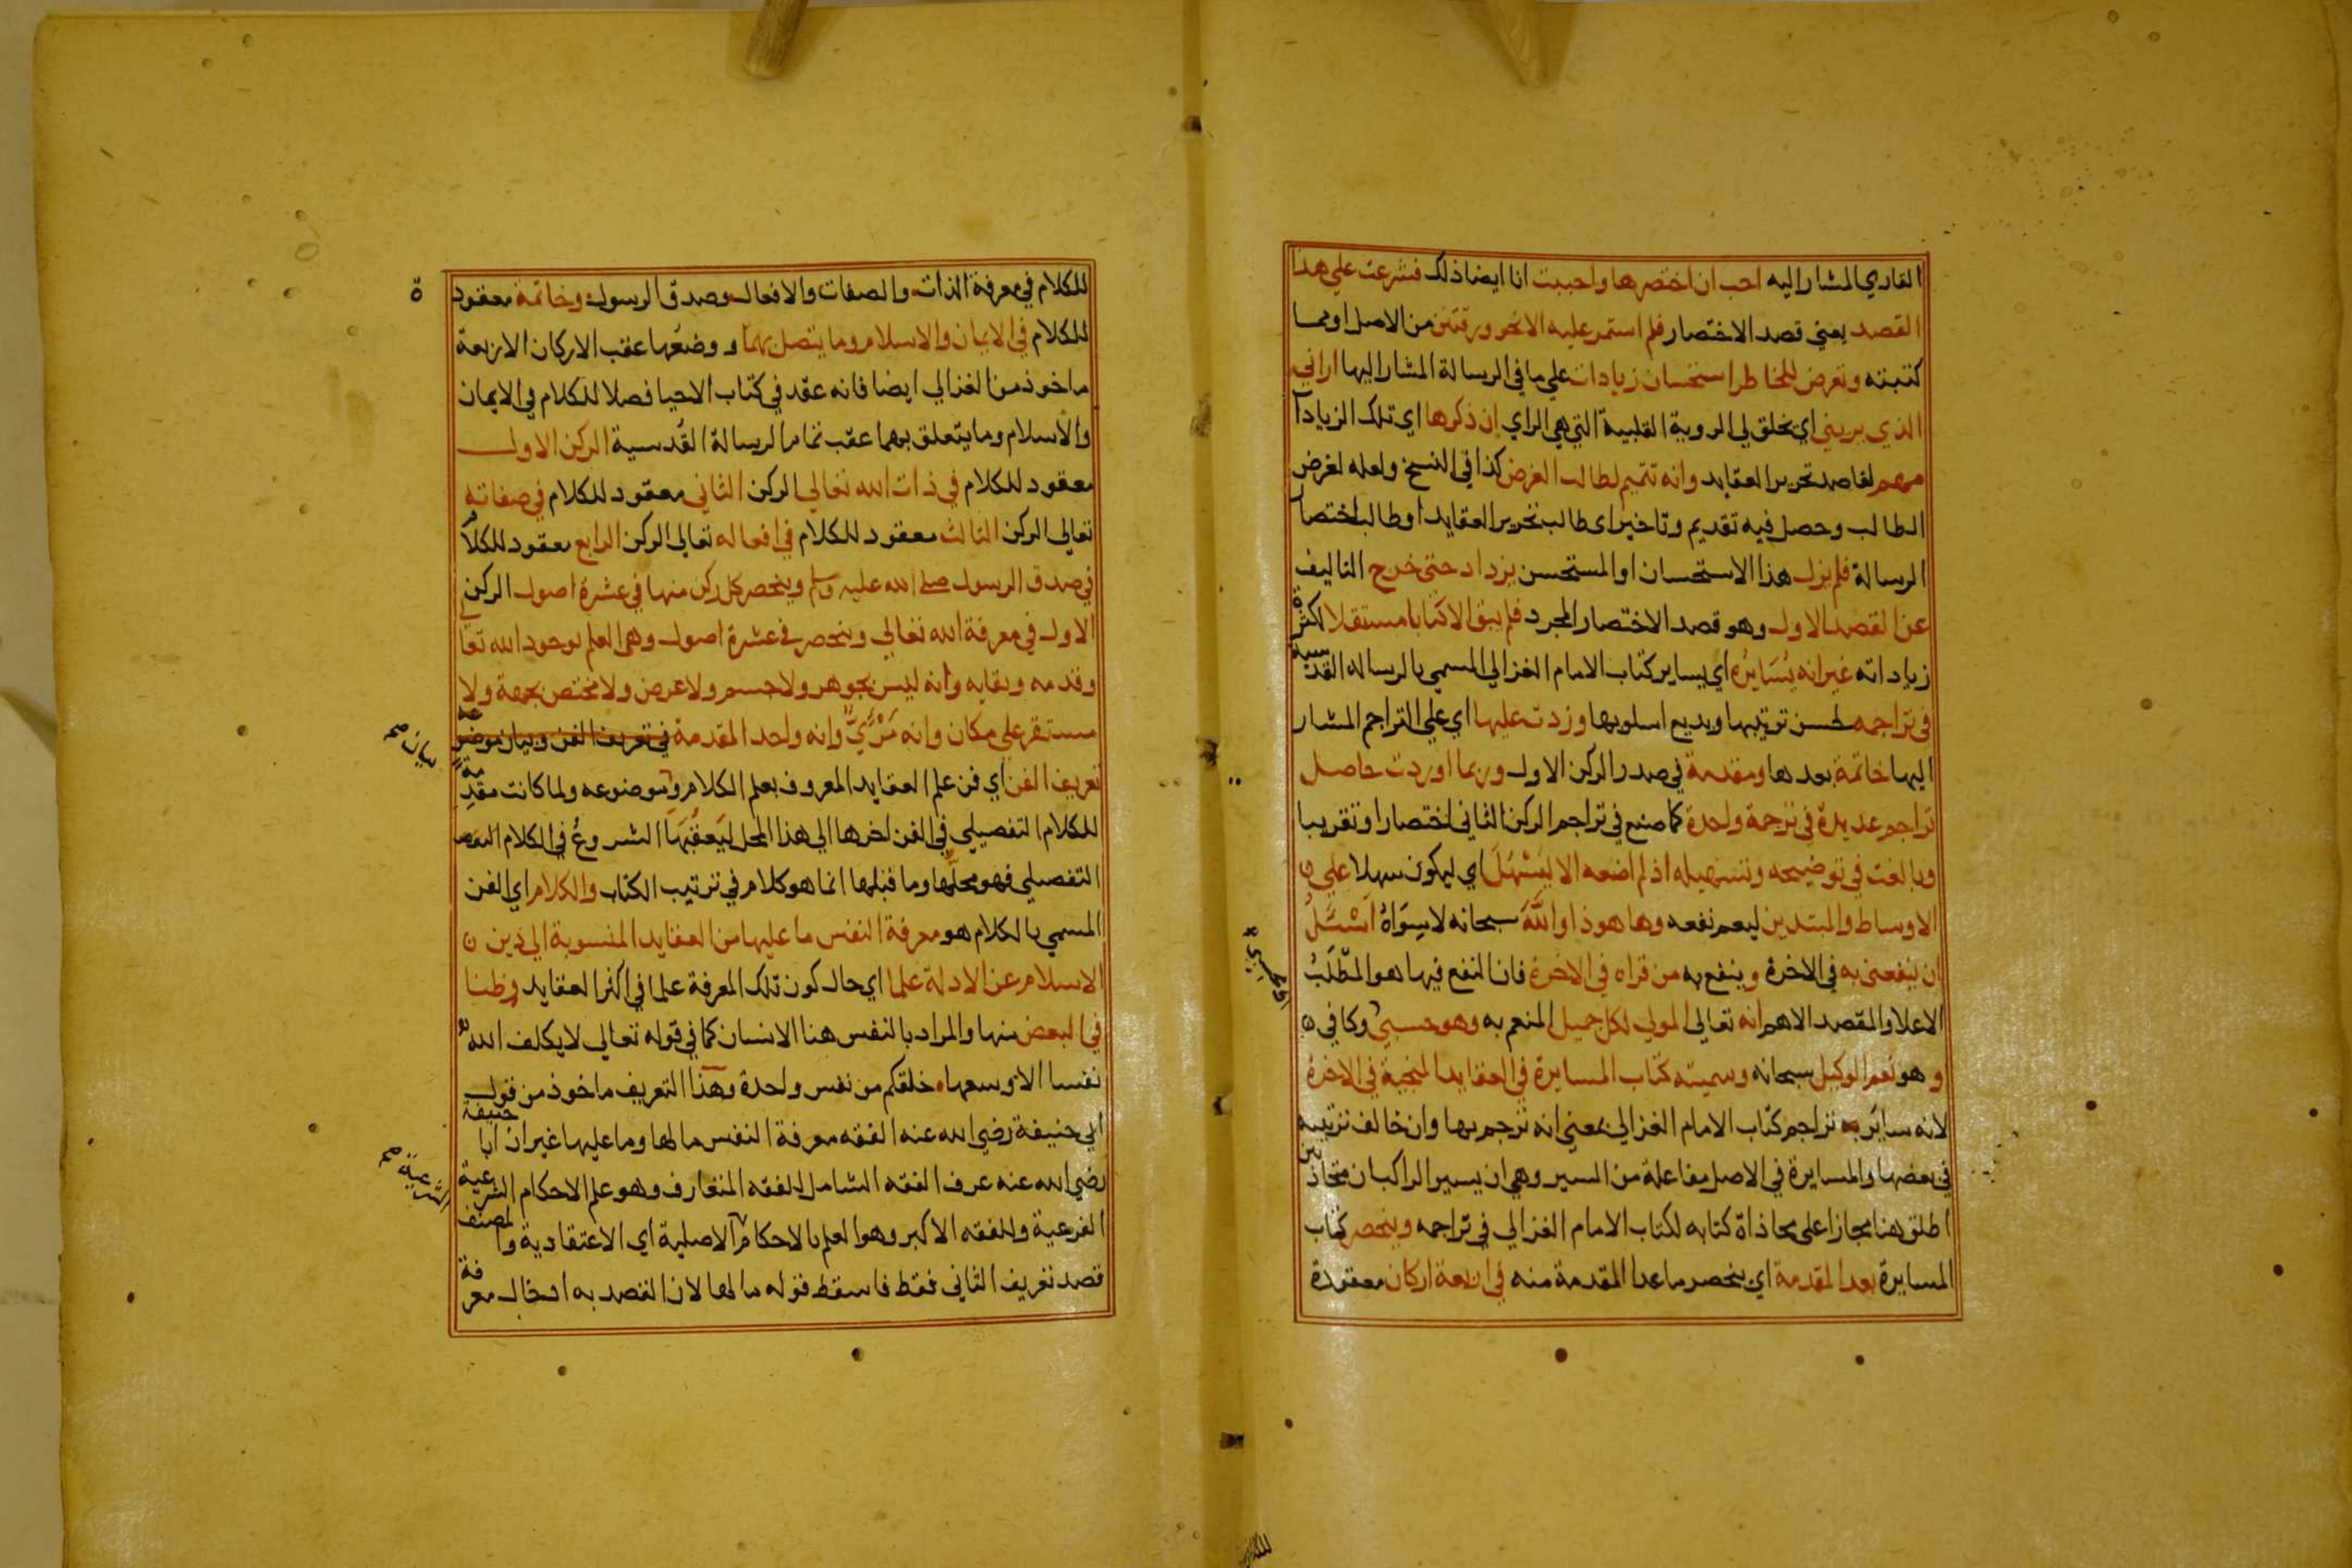 القاري المشار اليه احب ان اختصرها واحببت انا ايضا ذلك فشرعت علي هذا
القصد يعني قصد الاختصار فلم استمر عليه الا نحو ورقتين من الاصل او مما
كتبته وتعرض للخاطر استحسان زيادات علي ما في الرسالة المشار اليها اراني
الذي يريني اي يخلق لي الروية القلبية التي هي الراي ان ذكرها اي تلك الزيادات
مهم لقاصد تحرير العقايد وانه تتميم لطالب الغرض كذا في النسخ ولعله لغرض
الطالب وحصل فيه تقديم وتاخير اي طالب تحرير العقايد او طالب اختصار
الرسالة فلم يزل هذا الاستحسان او المستحسن يزداد حتي خرج التاليف
عن القصد الاول وهو قصد الاختصار المجرد فلم يبق الا كتابا مستقلا لكثرة
زياداته غير انه يُسَايرُه اي يساير كتاب الامام الغزالي المسمي بالرسالة القدسية
في تراجمه لحسن ترتيبها وبديع اسلوبها وزدت عليها اي علي التراجم المشار
اليها خاتمة بعدها ومقدمة في صدر الركن الاول وربما اوردت حاصل
تراجم عديدة في ترجمة واحدة كما صنع في تراجم الركن الثاني اختصارا وتقريبا
وبالغت في توضيحه وتسهيله اذ لم اضعه الا ليَسْهُلَ اي ليكون سهلا علي
الاوساط والمبتدين ليعم نفعه وها هو ذا واللهَ سبحانه لا سِوَاهُ اَسْئَلُ
ان ينفعني به في الاخرة وينفع به من قراه في الاخرة فان النفع فيها هو المطْلَبُ
الاعلا والمقصد الاهم انه تعالي المولي لكل جميل المنعم به وهو حسبي وكافي
وهو نعم الوكيل سبحانه وسميته كتاب المسايرة في العقايد المنجية في الاخرة
لانه ساير به تراجم كتاب الامام الغزالي بمعني انه ترجم بها وان خالف ترتيبه
في بعضها والمسايرة في الاصل مفاعلة من السير وهي ان يسير الراكبان متحاذيين
اطلق هنا مجازا علي محاذاة كتابه لكتاب الامام الغزالي في تراجمه وينحصر كتاب
المسايرة بعد المقدمة اي ينحصر ما عدا المقدمة منه في اربعة اركان معقودة
للكلام في معرفة الذات والصفات والافعال وصدق الرسول وخاتمة معقود
للكلام في الايمان والاسلام وما يتصل بهما ووضعها عقب الاركان الاربعة
ماخوذ من الغزالي ايضا فانه عقد في كتاب الاحيا فصلا للكلام في الايمان
والاسلام وما يتعلق بهما عقب تمام الرسالة القدسية الركن الاول
معقود للكلام في ذات الله تعالي الركن الثاني معقود للكلام في صفاته
تعالي الركن الثالث معقود للكلام في افعاله تعالي الركن الرابع معقود للكلام
في صدق الرسول صلي الله عليه وسلم وينحصر كل ركن منها في عشرة اصول الركن
الاول في معرفة الله تعالي وينحصر في عشرة اصول وهي العلم بوجود الله تعا
وقدمه وبقايه وانه ليس بجوهر ولا جسم ولا عرض ولا مختص بجهة ولا
مستقر علي مكان وانه مَرْئِيٌّ وانه واحد المقدمة في تعريف الفن وبيان موضوعه
بيان صح
تعريف الفن اي فن علم العقايد المعروف بعلم الكلام وموضوعه ولما كانت مقدمة
للكلام التفصيلي في الفن اخرها الي هذا المحل ليَعقُبَهَا الشروعُ في الكلام
التفصيلي فهو محلها وما قبلها انما هو كلام في ترتيب الكتاب والكلام اي الفن
المسمي بالكلام هو معرفة النفس ما عليها من العقايد المنسوبة الي دين
الاسلام عن الادلة علما اي حال كون تلك المعرفة علما في اكثر العقايد وظنا
في البعض منها والمراد بالنفس هنا الانسان كما في قوله تعالي لا يكلف الله
نفسا الا وسعها خلقكم من نفس واحدة وهذا التعريف ماخوذ من قول
ابي حنيفة رضي الله عنه الفقه معرفة النفس ما لها وما عليها غير ان ابا حنيفة
رضي الله عنه عرف الفقه الشامل للفقه المتعارف وهو علم الاحكام الشرعية
الشرعية صح
الفرعية وللفقه الاكبر وهو العلم بالاحكام الاصلية اي الاعتقادية والمصنف
قصد تعريف الثاني فقط فاسقط قوله ما لها لان القصد به ادخال معرفة